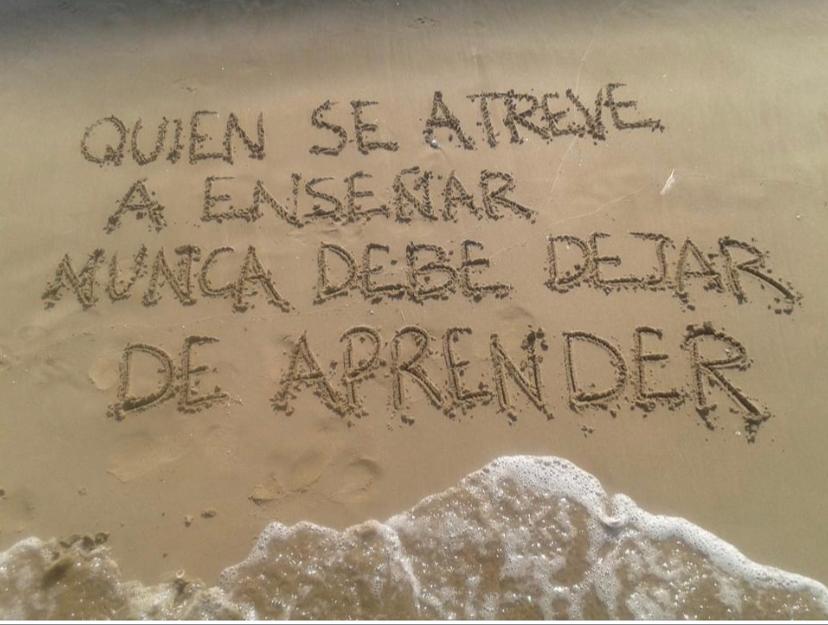 QUIEN SE ATREVE
A ENSEÑAR
NUNCA DEBE DEJAR
DE APRENDER